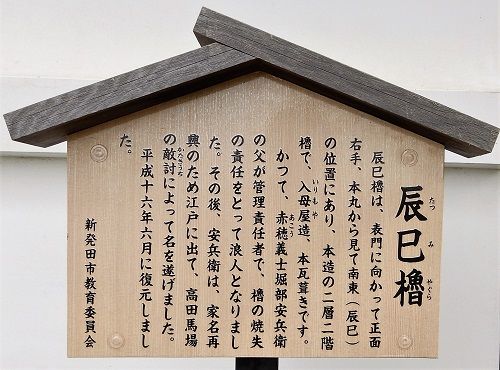 辰巳櫓
たつみやぐら
辰巳櫓は、表門に向かって正面
右手、本丸から見て南東（辰巳）
の位置にあり、木造の二層二階
櫓で、入母屋造、本瓦葺きです。
いりもや
かつて、赤穂義士堀部安兵衛
あこう
の父が管理責任者で、櫓の焼失
の責任をとって浪人となりまし
た。その後、安兵衛は、家名再
興のため江戸に出て、高田馬場
の敵討によって名を遂げました。
かたきうち
平成十六年六月に復元しまし
た。
新発田市教育委員会